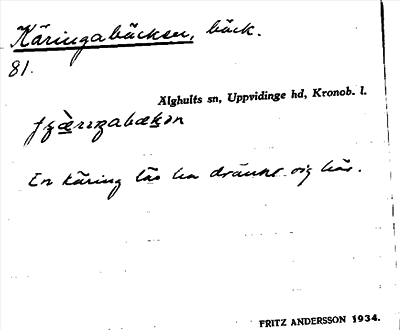 Käringabäcken, bäck.
81.
Älghults sn, Uppvidinge hd, Kronob. l.
En käring lär ha dränkt sig här.
FRITZ ANDERSSON 1934.